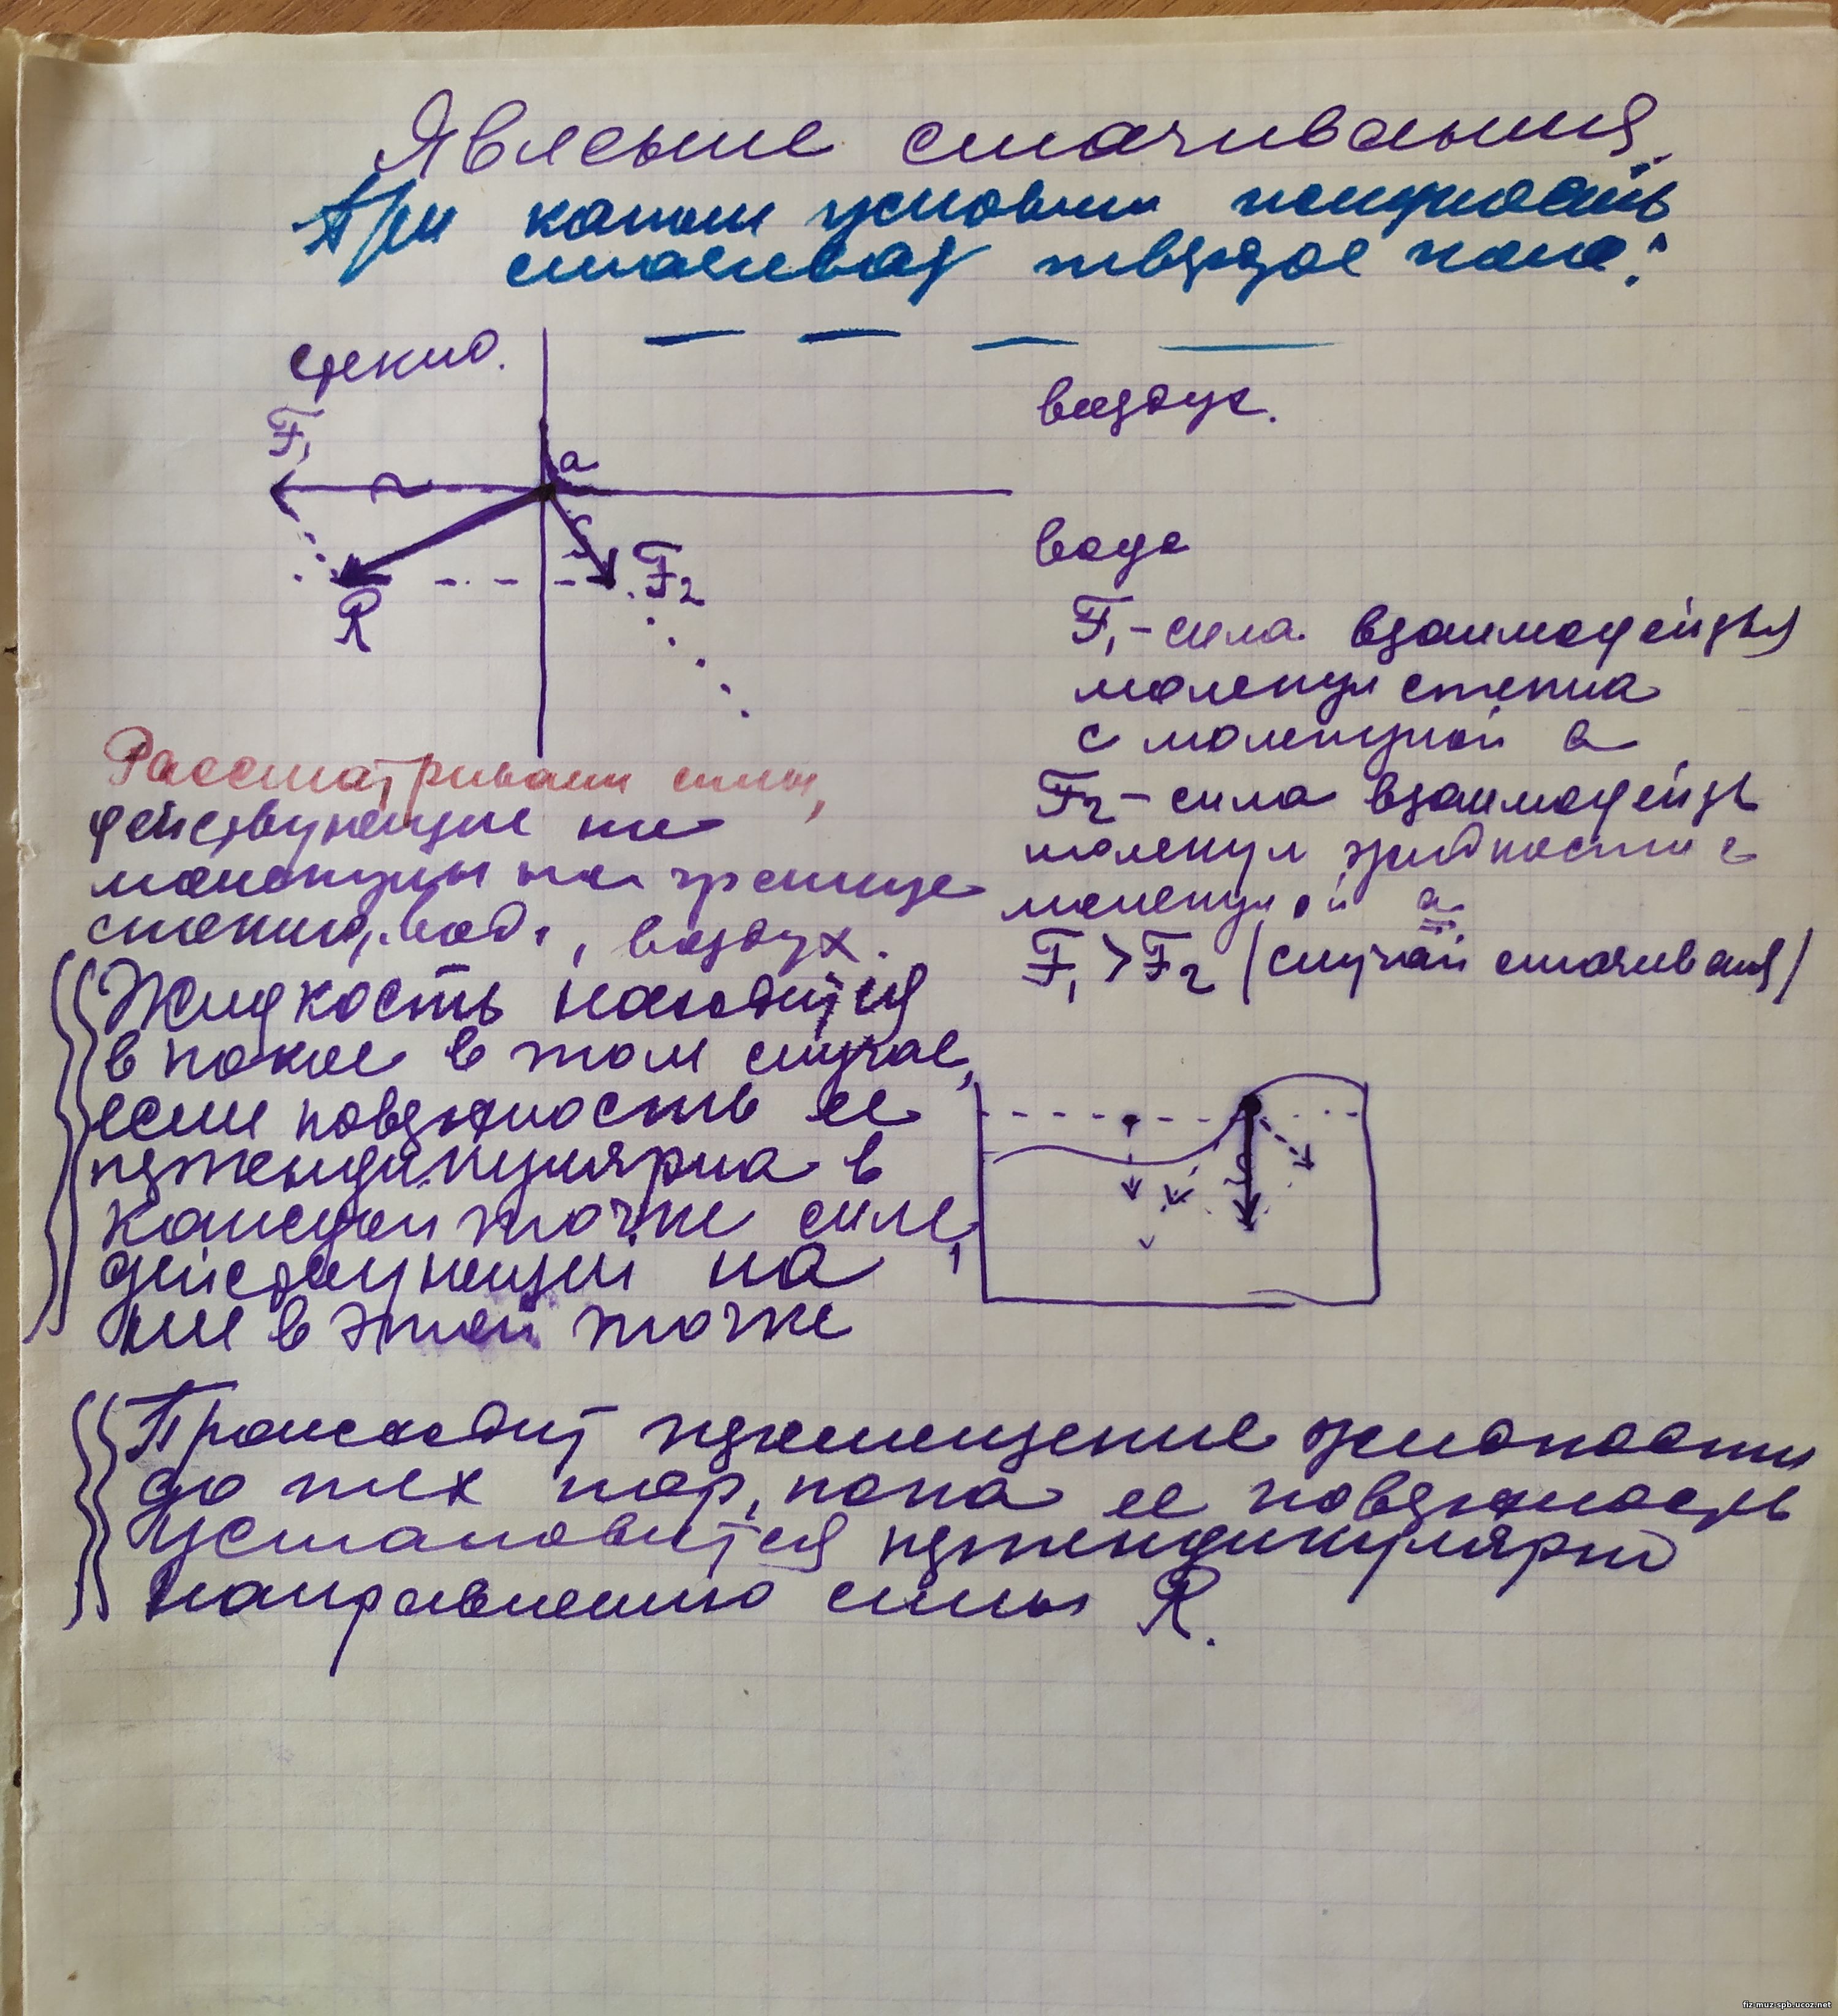 Явление смачивания.
При каком условии жидкость
смачивает твёрдое тело?
стекло.
воздух.
F₁
a
вода
F₂
R
F₁ – сила взаимодейств
молекул стекла
с молекулой a
F₂ – сила взаимодейств
молекул жидкости с
молекулой a
F₁ > F₂ (случай смачивания)
Рассматриваем силы,
действующие на
молекулы на границе
стекло, вода, воздух.
Жидкость находится
в покое в том случае,
если поверхность ее
перпендикулярна в
каждой точке силе,
действующей на
нее в этой точке
Происходит перемещение жидкости
до тех пор, пока ее поверхность
установится перпендикулярно
направлению силы R.
fiz-muz-spb.ucoz.net